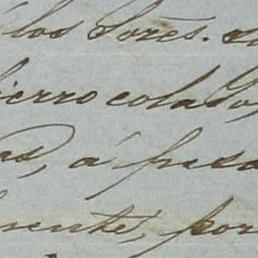 los Sores.
ierro colado,
as, á pesa
mente, por